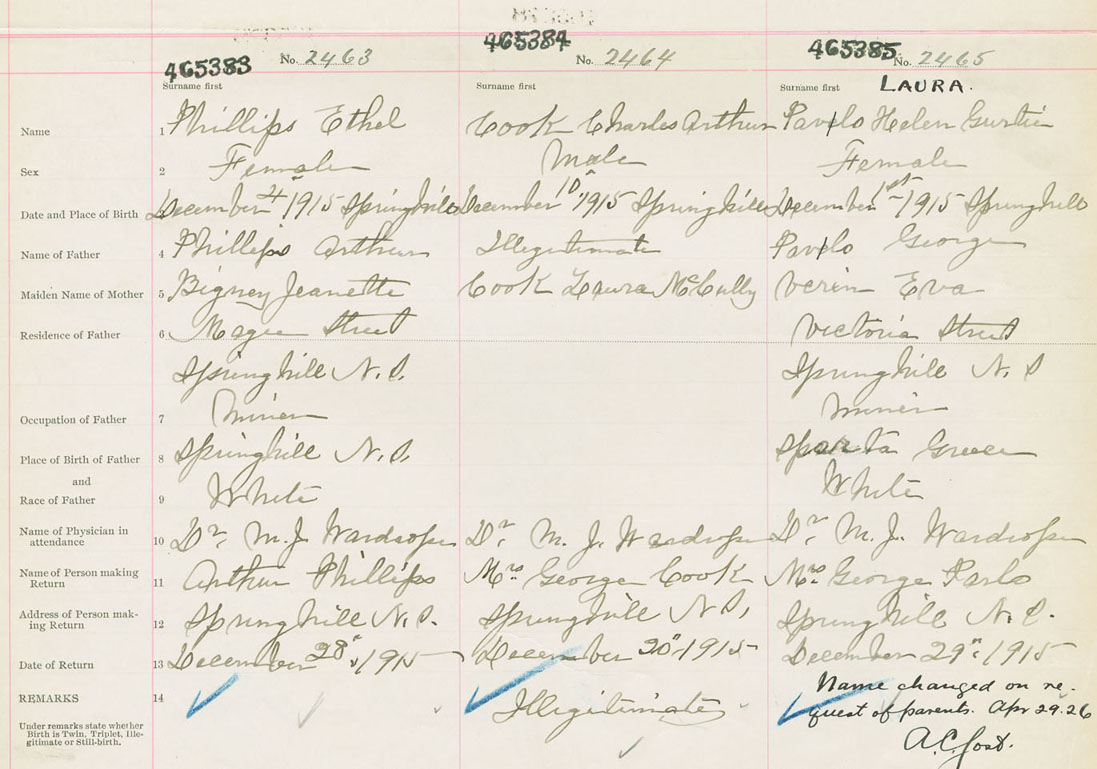 465383 No. 2463 465384 No. 2464 465385 No. 2465
Surname first Surname first Surname first LAURA.
Name 1 Phillips Ethel Cook Charles Arthur Pavlo Helen
Sex 2 Female Male Female
Date and Place of Birth 3 December 4" 1915 Springhill December 10" 1915 Springhill December 1st 1915 Springhill
Name of Father 4 Phillips Arthur Illegitimate Pavlo George
Maiden Name of Mother 5 Bigney Jeanette Cook Laura McCully Verin Eva
Residence of Father 6 Magee Street Victoria Street
Springhill N.S. Springhill N. S
Occupation of Father 7 Miner Miner
Place of Birth of Father 8 Springhill N.S. Sparta Greece
and
Race of Father 9 White White
Name of Physician in
attendance 10 Dr. M. J. Wardrope Dr. M. J. Wardrope Dr. M. J. Wardrope
Name of Person making
Return 11 Arthur Phillips Mrs George Cook Mrs George Parlo
Address of Person mak-
ing Return 12 Springhill N.S. Springhill N.S. Springhill N.S.
Date of Return 13 December 28", 1915 December 20" 1915 December 29" 1915
REMARKS 14 Illegitimate Name changed on re-
quest of parents. Apr 29.26
A.C. Jost.
Under remarks state whether
Birth is Twin, Triplet, Ille-
gitimate or Still-birth.